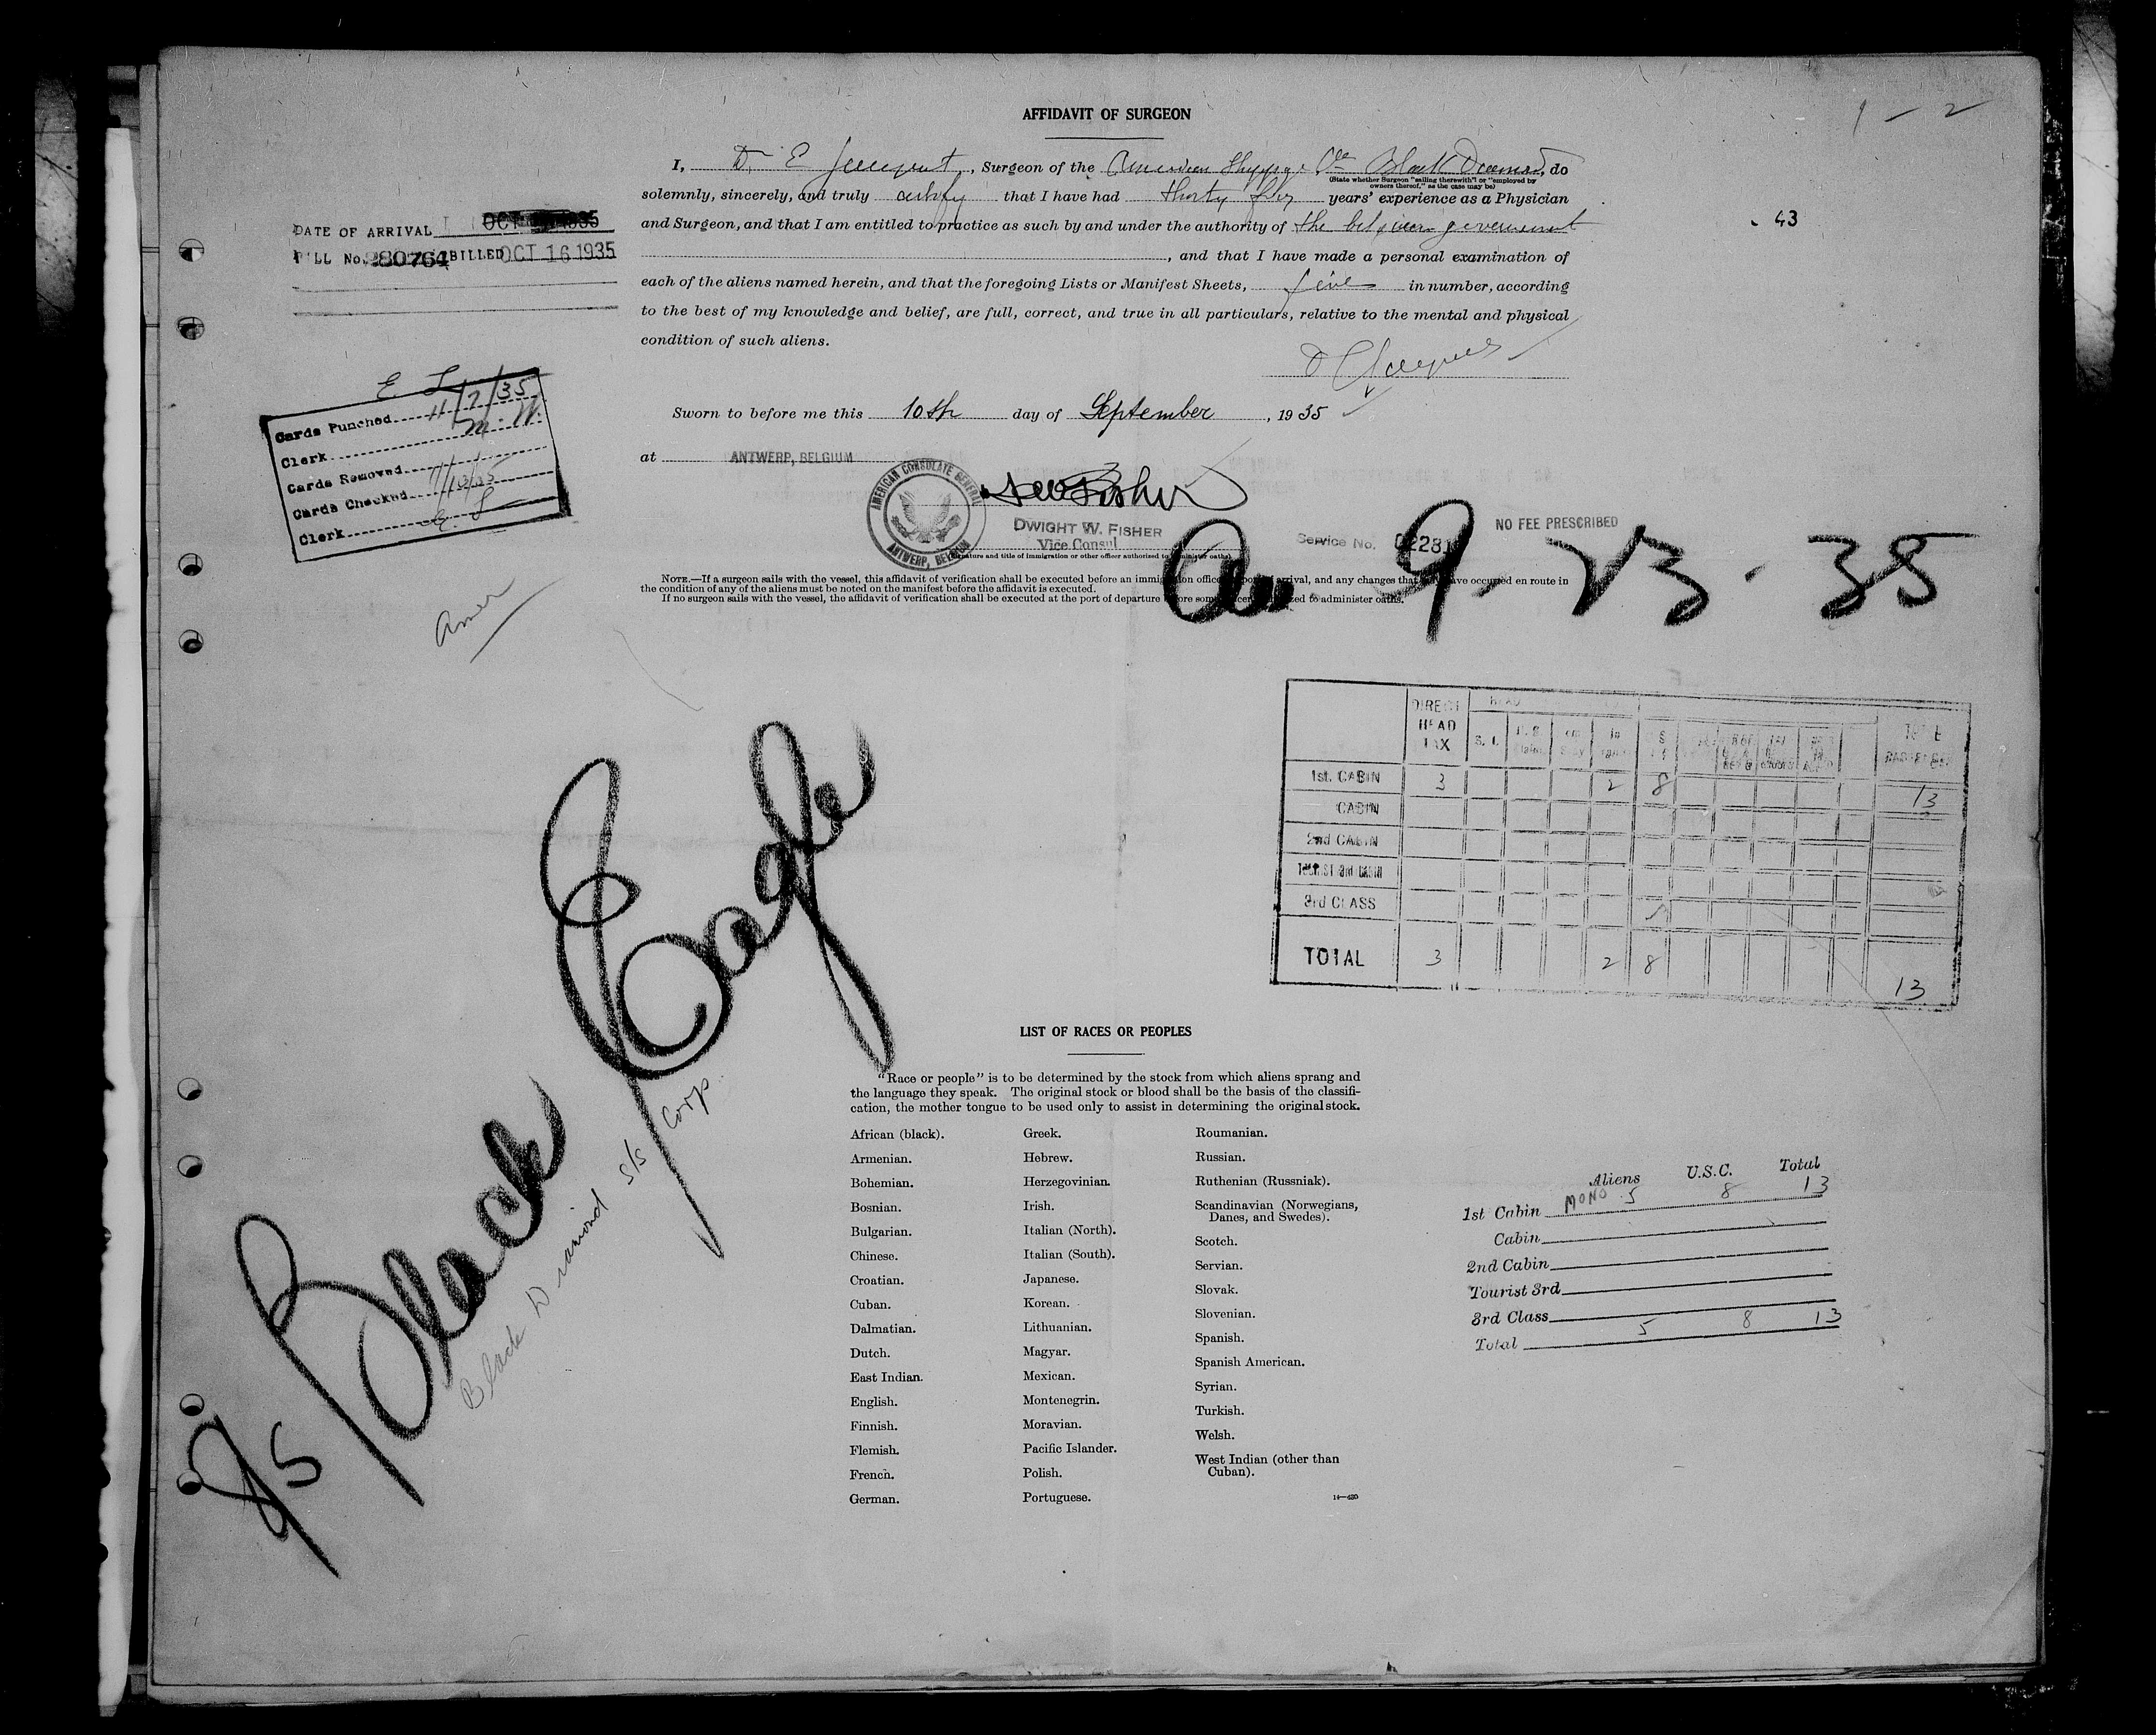 1 - 2
AFFIDAVIT OF SURGEON
I, Dr E , Surgeon of the American Black Diamond, do
(State whether Surgeon "sailing therewith" or "employed by
owners thereof," as the case may be)
solemnly, sincerely, and truly certify that I have had thirty years' experience as a Physician
and Surgeon, and that I am entitled to practice as such by and under the authority of the belgian government
43
, and that I have made a personal examination of
each of the aliens named herein, and that the foregoing Lists or Manifest Sheets, five in number, according
to the best of my knowledge and belief, are full, correct, and true in all particulars, relative to the mental and physical
condition of such aliens.
DATE OF ARRIVAL OCT 1935
BILL No. 280764 BILLED OCT 16 1935
E L
Cards Punched 11/7/35
Clerk M. W.
Cards Removed
Cards Checked
Clerk E. L
Sworn to before me this 10th day of September, 1935
at ANTWERP, BELGIUM
AMERICAN CONSULATE GENERAL
ANTWERP, BELGIUM
DW Fisher
DWIGHT W. FISHER
Vice Consul
(Signature and title of immigration or other officer authorized to administer oaths)
Service No.
NO FEE PRESCRIBED
9-23-35
NOTE.—If a surgeon sails with the vessel, this affidavit of verification shall be executed before an immigration officer arrival, and any changes that have occurred en route in
the condition of any of the aliens must be noted on the manifest before the affidavit is executed.
If no surgeon sails with the vessel, the affidavit of verification shall be executed at the port of departure before some to administer oaths.
Amer
DIRECT HEAD TAX S. I.
1st. CABIN 3 2 8 13
CABIN
2nd CABIN
TOURIST 3rd CABIN
3rd CLASS
TOTAL 3 2 8 13
S/S Black Eagle
Black Diamond S/S Corp
LIST OF RACES OR PEOPLES
"Race or people" is to be determined by the stock from which aliens sprang and
the language they speak. The original stock or blood shall be the basis of the classifi-
cation, the mother tongue to be used only to assist in determining the original stock.
African (black).
Armenian.
Bohemian.
Bosnian.
Bulgarian.
Chinese.
Croatian.
Cuban.
Dalmatian.
Dutch.
East Indian.
English.
Finnish.
Flemish.
French.
German.
Greek.
Hebrew.
Herzegovinian.
Irish.
Italian (North).
Italian (South).
Japanese.
Korean.
Lithuanian.
Magyar.
Mexican.
Montenegrin.
Moravian.
Pacific Islander.
Polish.
Portuguese.
Roumanian.
Russian.
Ruthenian (Russniak).
Scandinavian (Norwegians,
Danes, and Swedes).
Scotch.
Servian.
Slovak.
Slovenian.
Spanish.
Spanish American.
Syrian.
Turkish.
Welsh.
West Indian (other than
Cuban).
14—420
Aliens U.S.C. Total
1st Cabin MONO 5 8 13
Cabin
2nd Cabin
Tourist 3rd
3rd Class
Total 5 8 13